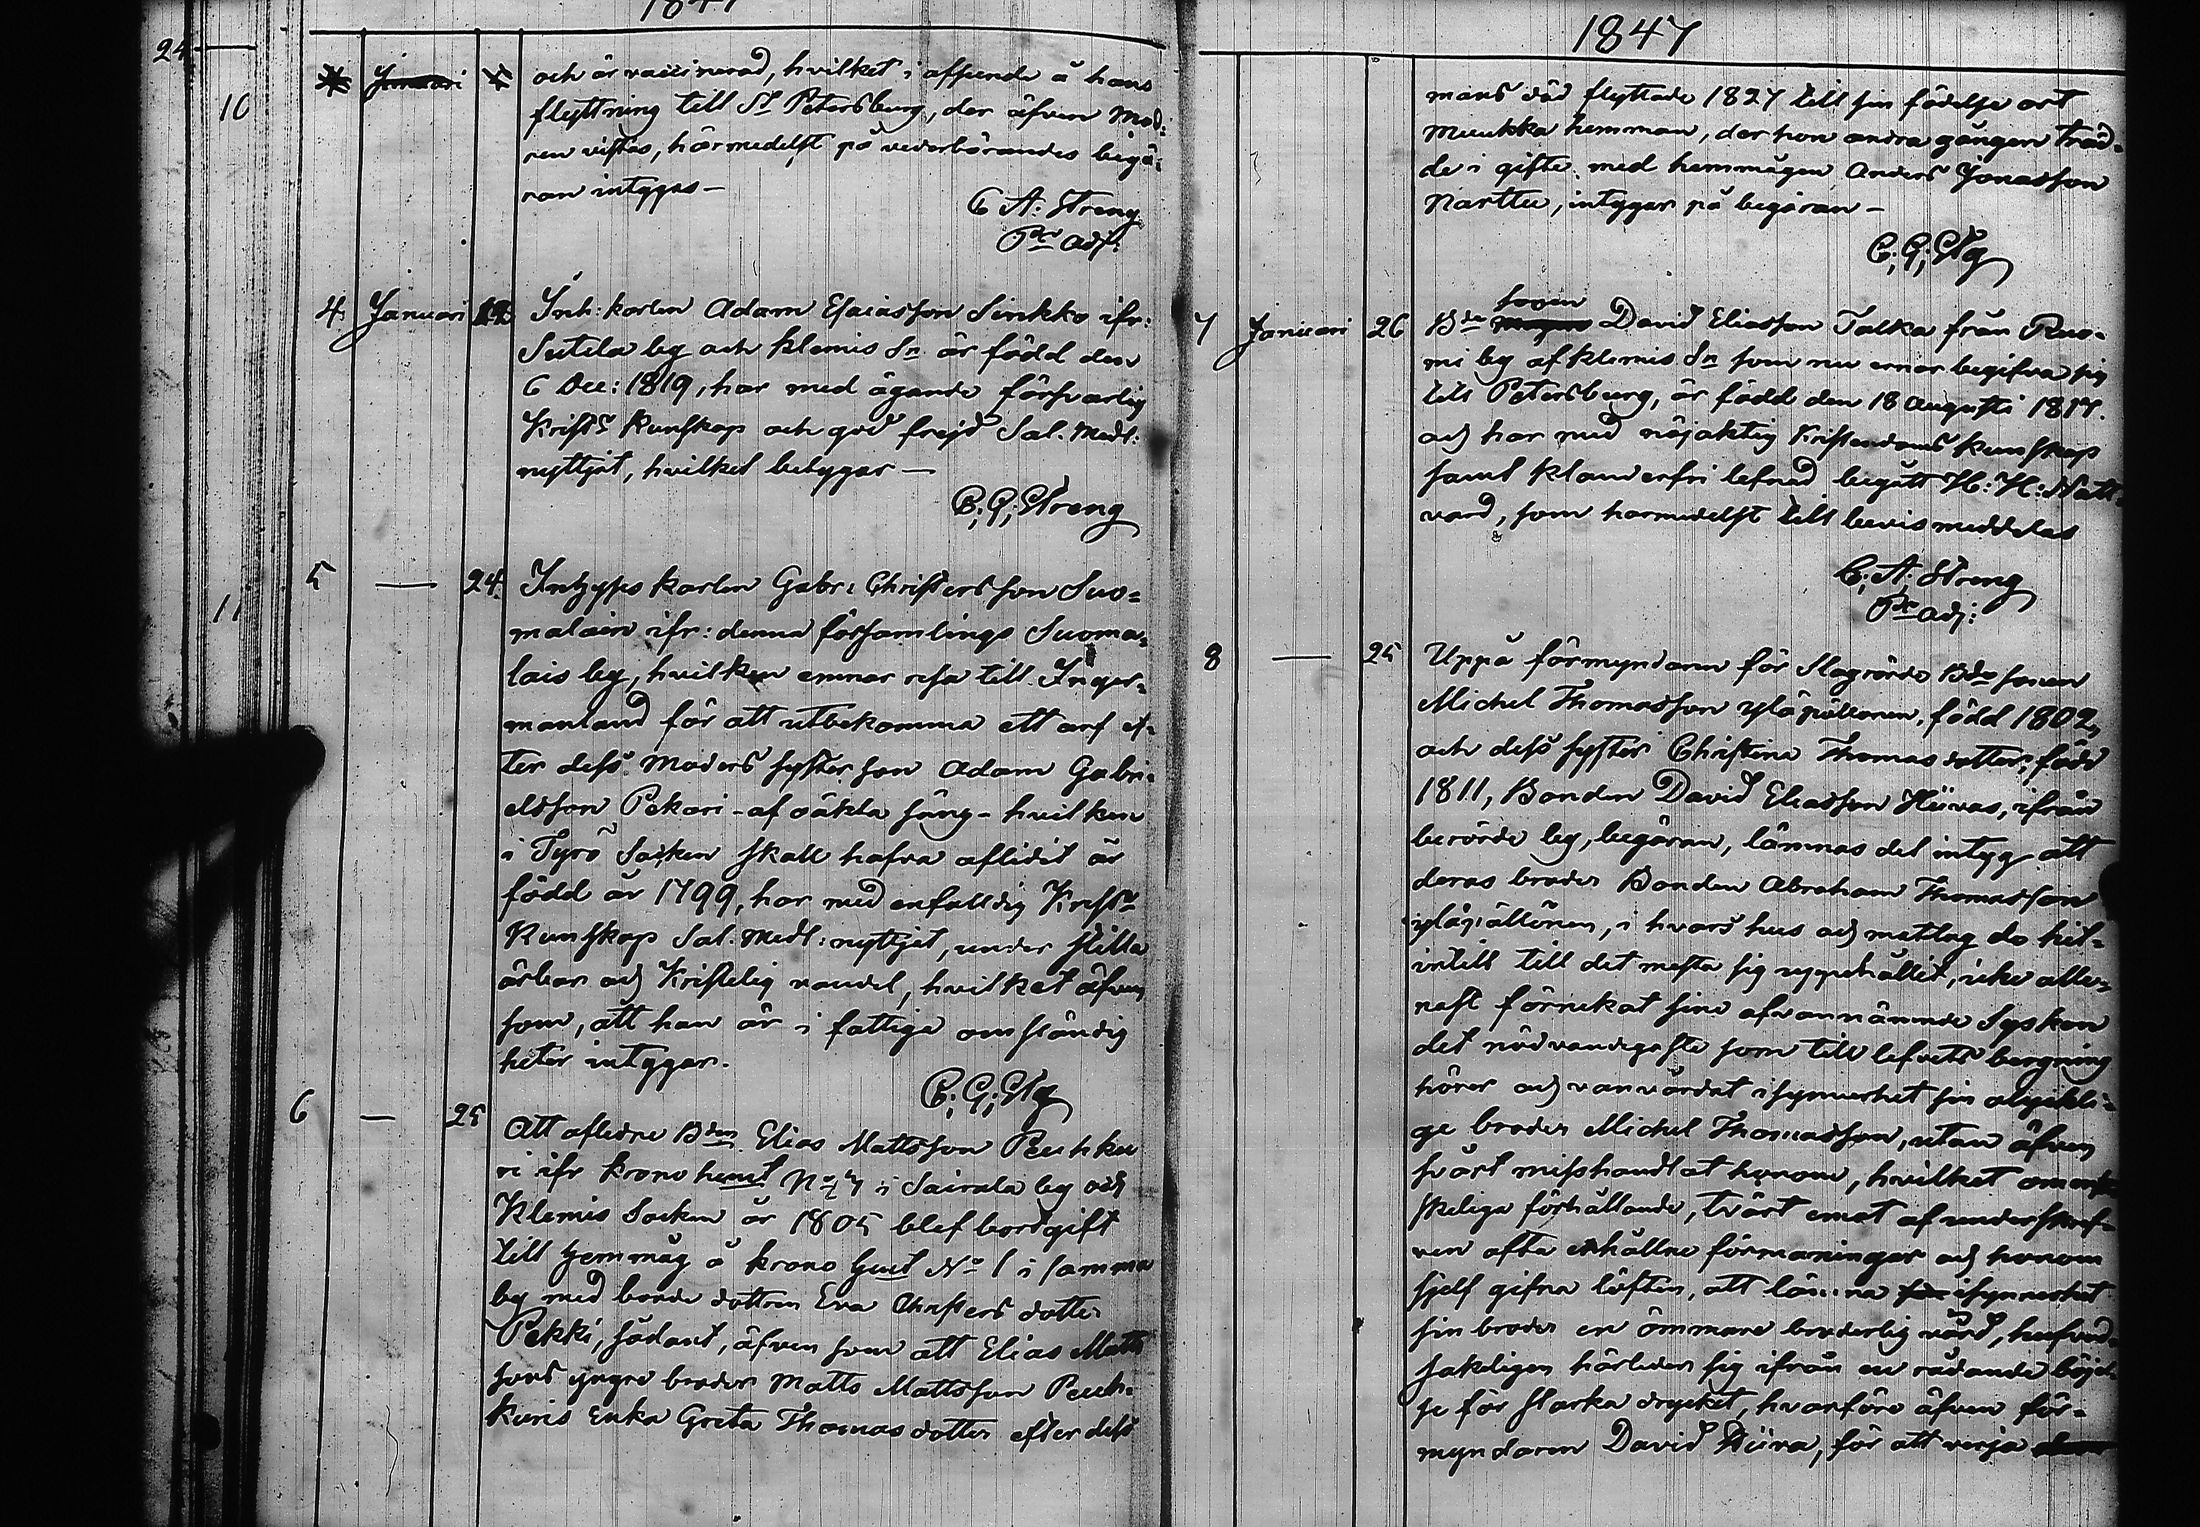 1847
24
10
Januari
och är vaccinerad, hvilket i afseende å hans
flyttning till St Petersburg, der äfven Mod-
ren vistas, härmedelst på vederbörandes begä-
ran intygas —
C A: Streng
Pr Adj:
4 Januari
Inh: karlen Adam Esaiasson Sinkko ifr:
Sutela by och Klemis Sn är född den
6 Dec: 1819, har med ägande försvarlig
Krists Kunskap och god frejd Sal. Medl:
nyttjat, hvilket betygar —
C; G; Streng
5 — 24.
11
Inhyses karlen Gabr: Christersson Suo=
malain ifr: denna församlings Suoma=
lais by, hvilken ernar resa till Inger=
manland för att utbekomma ett arf ef-
ter dess Moders syster son Adam Gabri-
elsson Pekari - af oäkta säng - hvilken
i Tyrö Socken skall hafva aflidit är
född år 1799, har med enfaldig Krists
Kunskap Sal. Medl: nyttjat, under stilla
ärbar och Kristelig vandel, hvilket äfven
som, att han är i fattiga omständig
heter intygar.
C; G; Stg
6 — 25
Att afledne Bden Elias Mattsson Peuhku
ri ifr krono hemt No 7 i Sairala by och
Klemis Socken år 1805 blef bortgift
till hemmåg å krono hemt No 1 i samma
by med bonde dottren Eva Christers dotter
Pekki, sådant, äfven som att Elias Matts
sons yngre broder Matts Mattsson Peuh-
kuris Enka Greta Thomas dotter efter dess
1847
mans död flyttade 1827 till sin födelse ort
Muukka hemman, der hon andra gången träd-
de i gifte med hemmågen Anders Jonasson
Narttu, intygar på begäran —
C; G; Stg
7 Januari 26
sonen
Bde David Eliasson Talka från Ruo-
mi by af Klemis Sn som nu ernar begifva sig
till Petersburg, är född den 18 Augusti 1817.
och har med nöjaktig Kristendoms kunskap
samt klanderfri lefnad begått H: H: Natt-
vard, som härmedelst till bevis meddelas
C; A; Streng
Pr Adj:
8 — 25
Uppå förmyndaren för Slagrörde Bde sonen
Michel Thomasson Yläpälönen, född 1802,
och dess syster Christina Thomas dotter, född
1811, Bonden David Eliasson Hiivas, ifrån
berörde by, begäran, lämnas det intyg att
deras broder Bonden Abraham Thomasson
Yläpällönen, i hvars hus och matlag de hit-
intill till det mesta sig uppehållit, icke alle-
nast förnekat sine ofvannämnde Syskon
det nödvändigaste som till lefvets bergning
hörer och vanvårdat i synnerhet sin olyckli-
ge broder Michel Thomasson, utan äfven
svårt misshandlat honom, hvilket omensk-
skeliga förhållande, tvärt emot af underskref-
ven ofta erhållne förmaningar och honom
sjelf gifna löften, att lämna isynnerhet
sin broder en ömmare broderlig vård, hufvud-
sakeligen härleder sig ifrån en rådande böjel-
se för starka drycker, hvarföre äfven för-
myndaren David Hiiva, för att verja